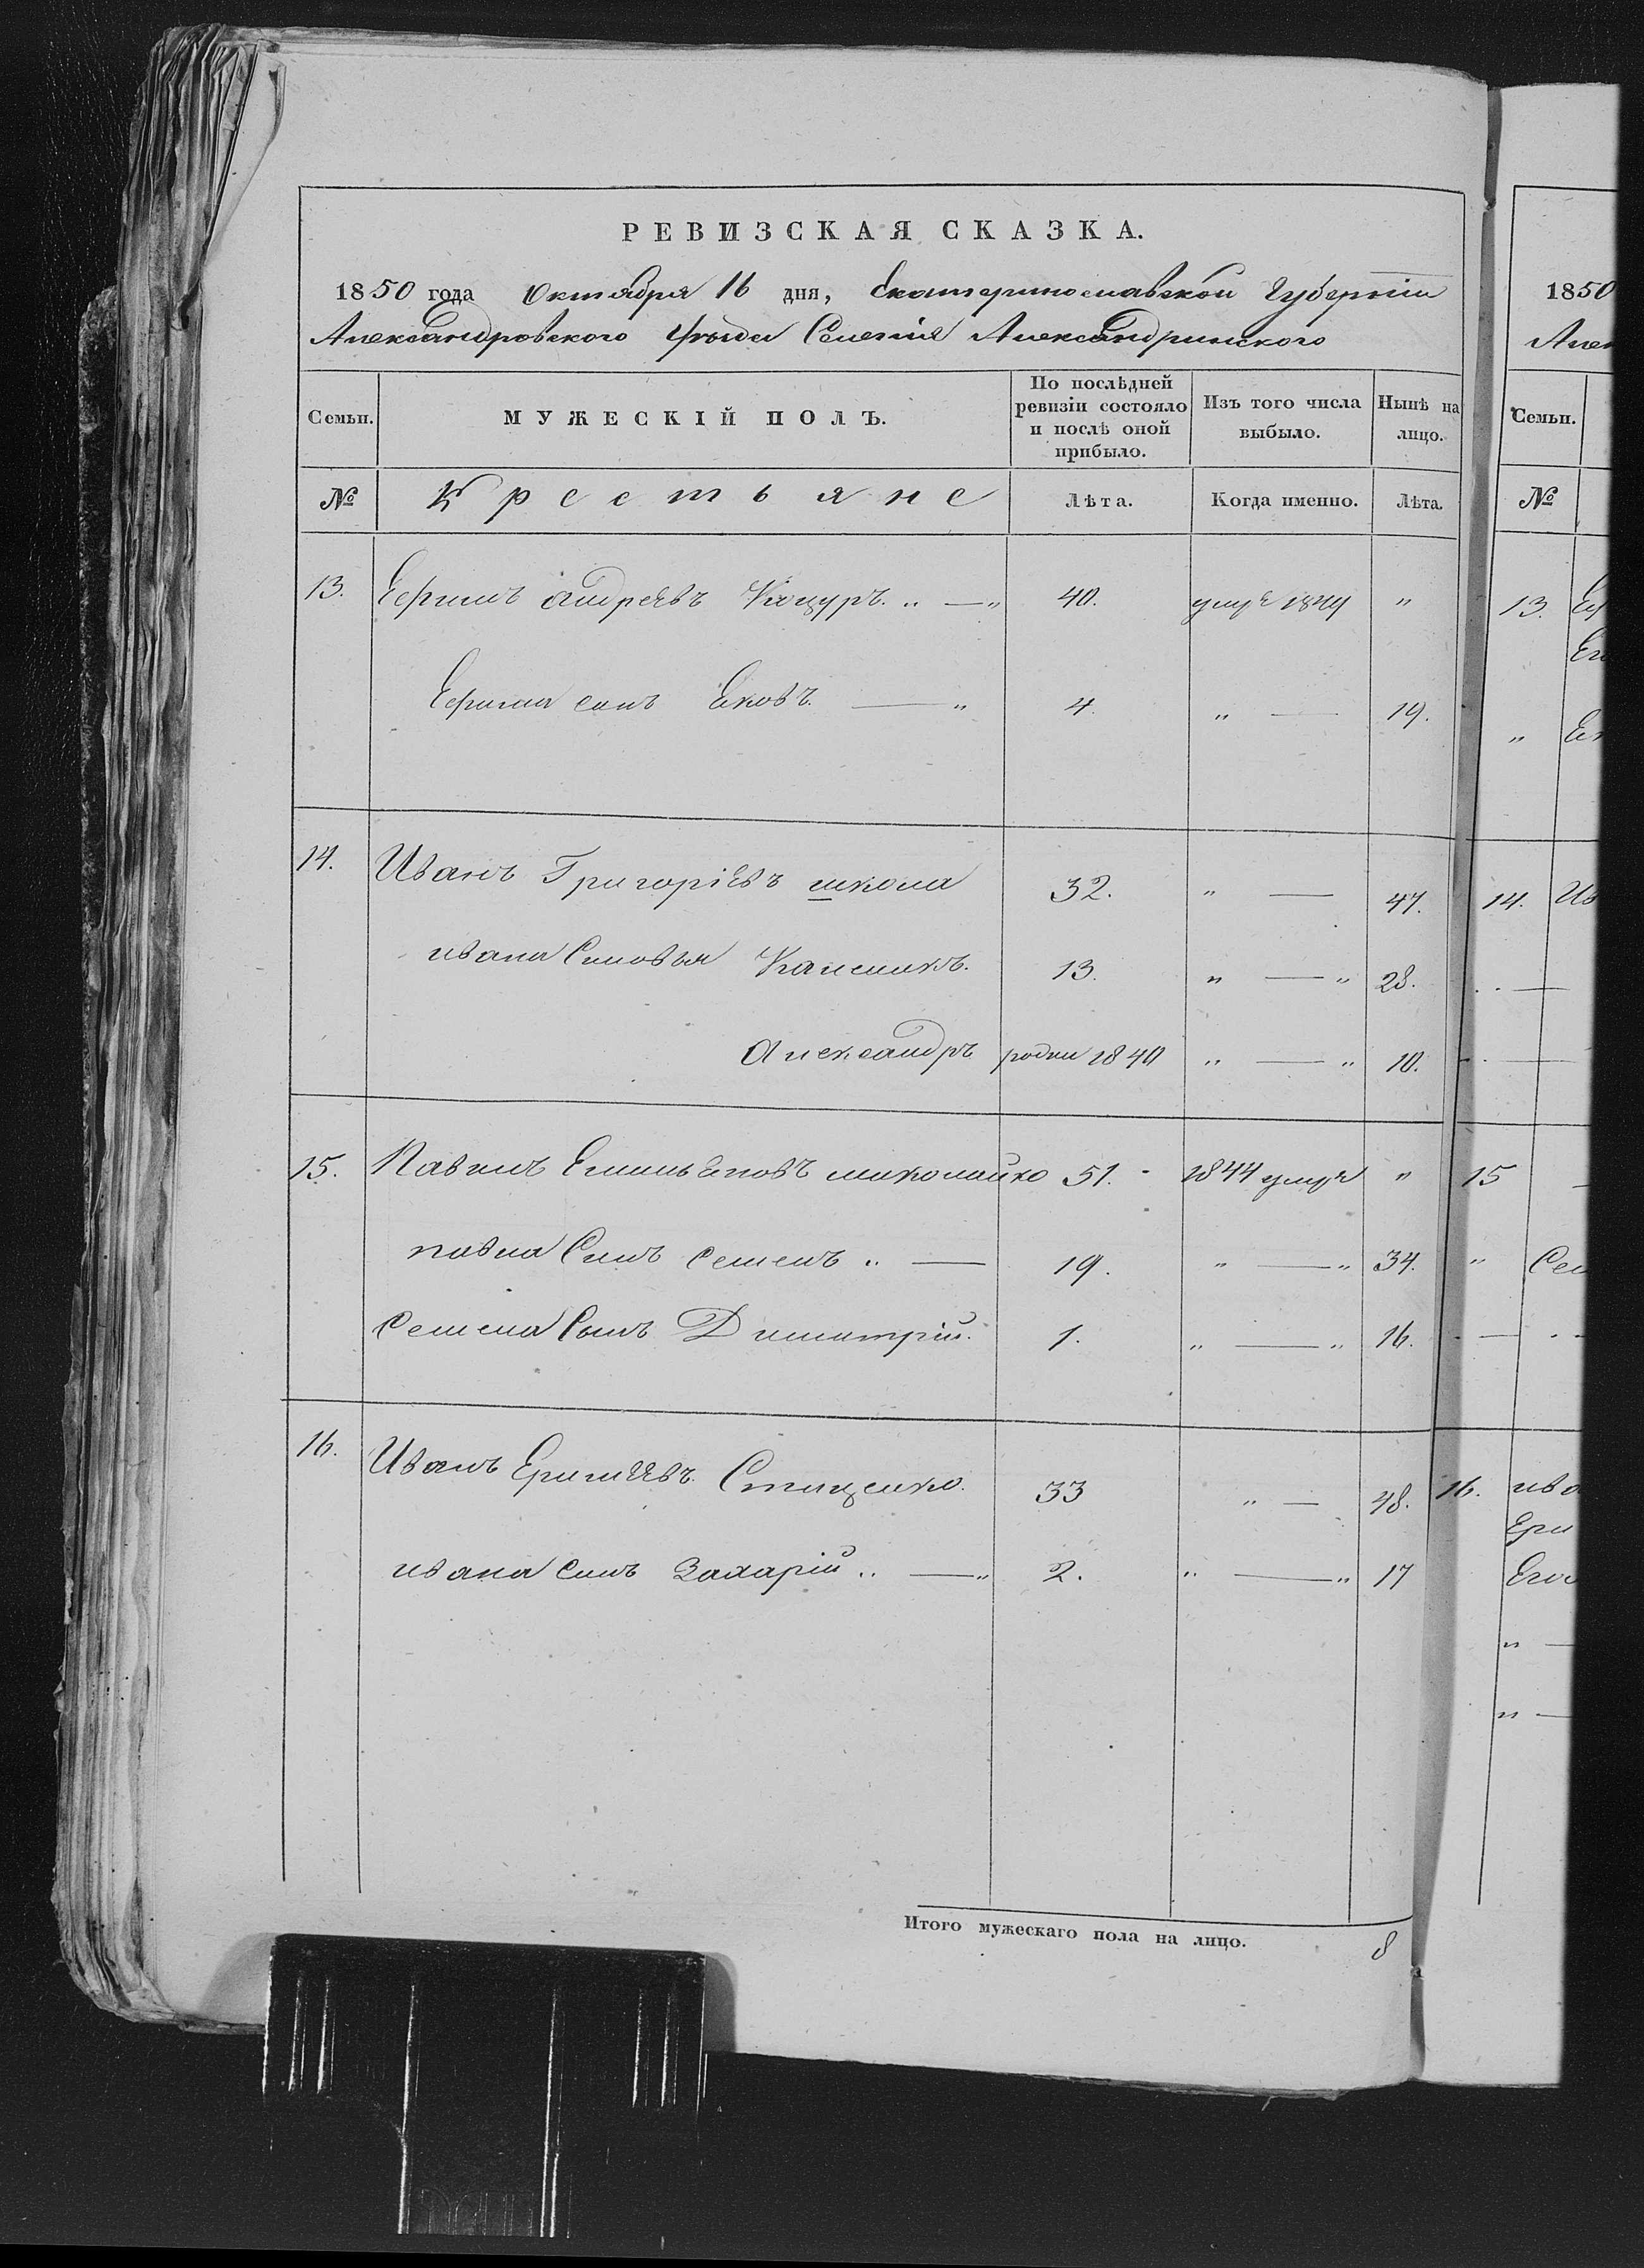 РЕВИЗСКАЯ СКАЗКА.
1850 года Октября 16 дня, Екатеринославской Губерніи
Александровского Уѣзда Селенія Александринского
Семьи. МУЖЕСКІЙ ПОЛЪ. По послѣдней ревизіи состояло и послѣ оной прибыло. Изъ того числа выбыло. Нынѣ на лицо.
№ Крестьяне Лѣта. Когда именно. Лѣта.
13. Ефимъ андреевъ Кацуръ. „ — „ 40. умре 1844 „
Ефима синъ Яковъ. — „ 4. „ — 19.
14. Иванъ Григоріевъ школа 32. „ — 47.
ивана Синовья Калениkъ. 13. „ — „ 28.
Александръ родил 1840 „ — „ 10.
15. Павилъ Емильяновъ миколайко 51. - 1844 умре „
павла Синъ Семенъ „ — 19. „ — „ 34.
Семена Сынъ Димитрій. 1. „ — „ 16.
16. Иванъ Стаценко. 33 „ — 48.
ивана Синъ Захарій „ — „ 2. „ — „ 17
Итого мужескаго пола на лицо. 8
1850
Семьи.
№
13.
14.
15
16.